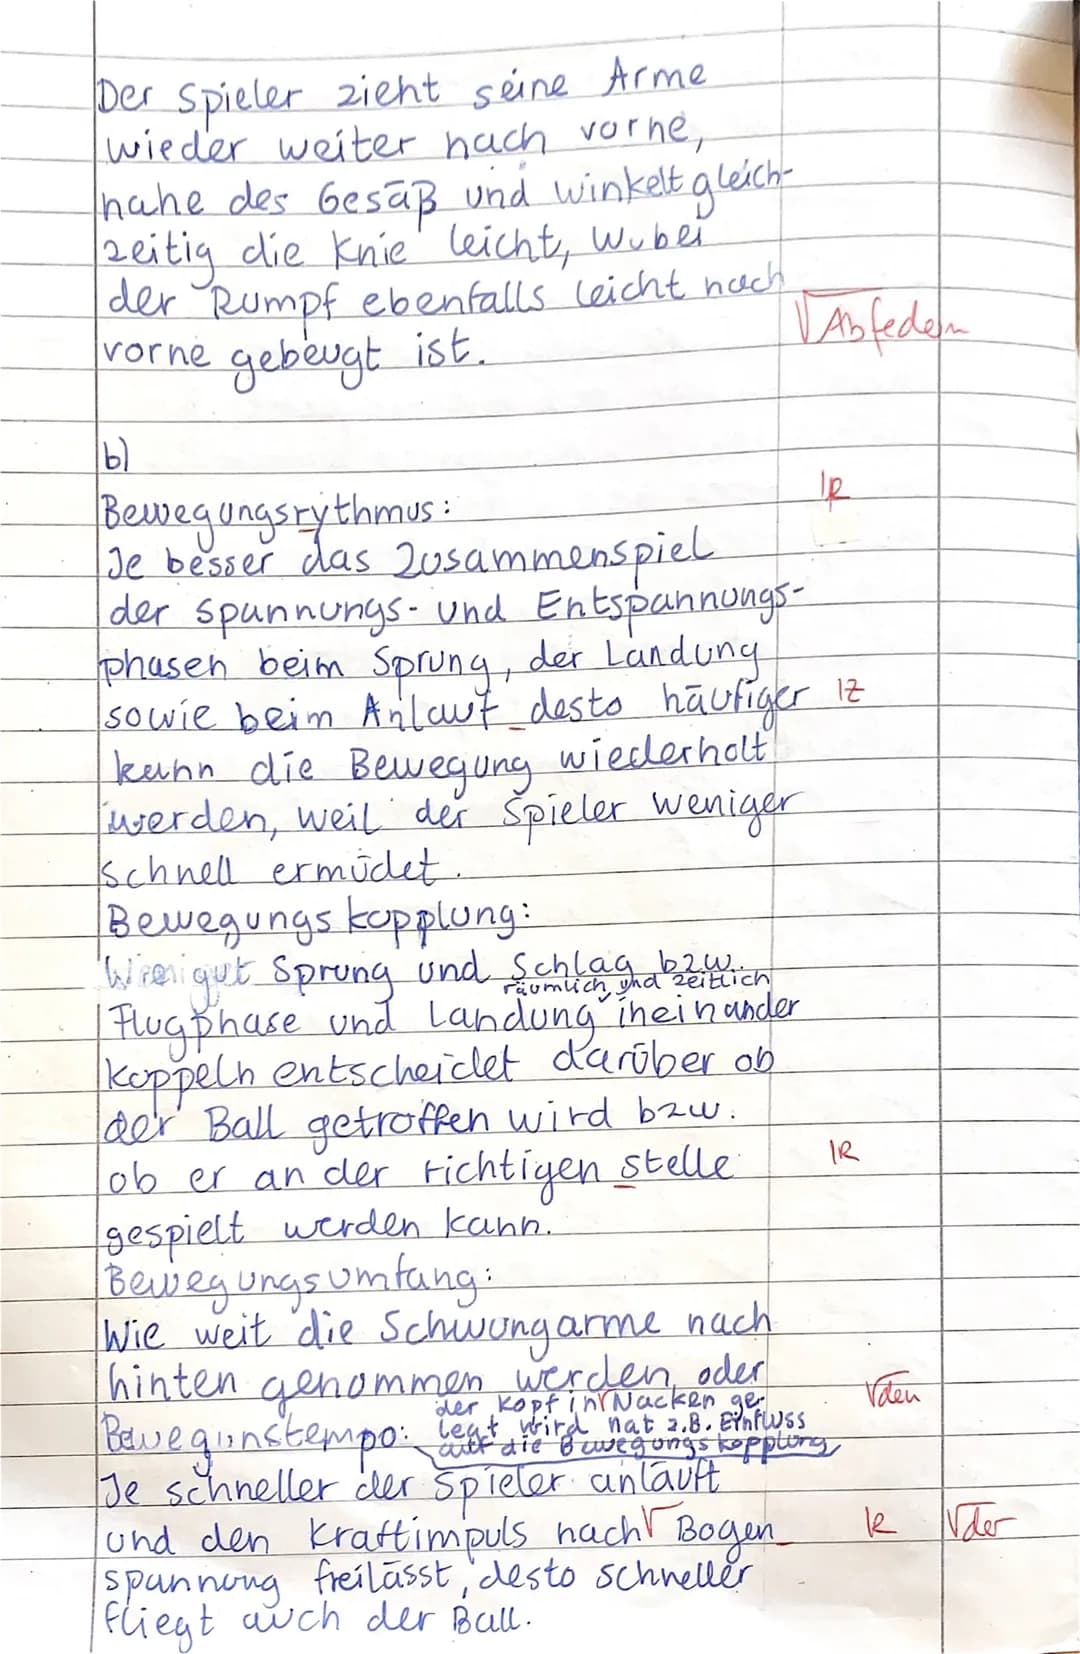 Der Spieler zieht seine Arme
wieder weiter nach vorne,
nahe des Gesäß und winkelt gleich-
zeitig die Knie leicht, wobei
der Rumpf ebenfalls leicht nach
vorne gebeugt ist.
√Abfedern
b)
Bewegungsrythmus:
|R
Je besser das Zusammenspiel
der Spannungs- und Entspannungs-
phasen beim Sprung, der Landung
sowie beim Anlauf desto häufiger
|Z
kann die Bewegung wiederholt
werden, weil der Spieler weniger
schnell ermüdet.
Bewegungskopplung:
Wie gut Sprung und Schlag bzw.
räumlich und zeitlich
Flugphase und Landung ineinander
koppeln entscheidet darüber ob
der Ball getroffen wird bzw.
ob er an der richtigen stelle
|R
gespielt werden kann.
Bewegungsumfang:
Wie weit die Schwungarme nach
hinten genommen werden, oder
der Kopf in √ Nacken ge-
√den
Bewegunstempo: legt wird hat z.B. Einfluss
auf die Bewegungskopplung
Je schneller der Spieler anläuft
und den Kraftimpuls nach √ Bogen
R √der
spannung freilässt, desto schneller
fliegt auch der Ball.